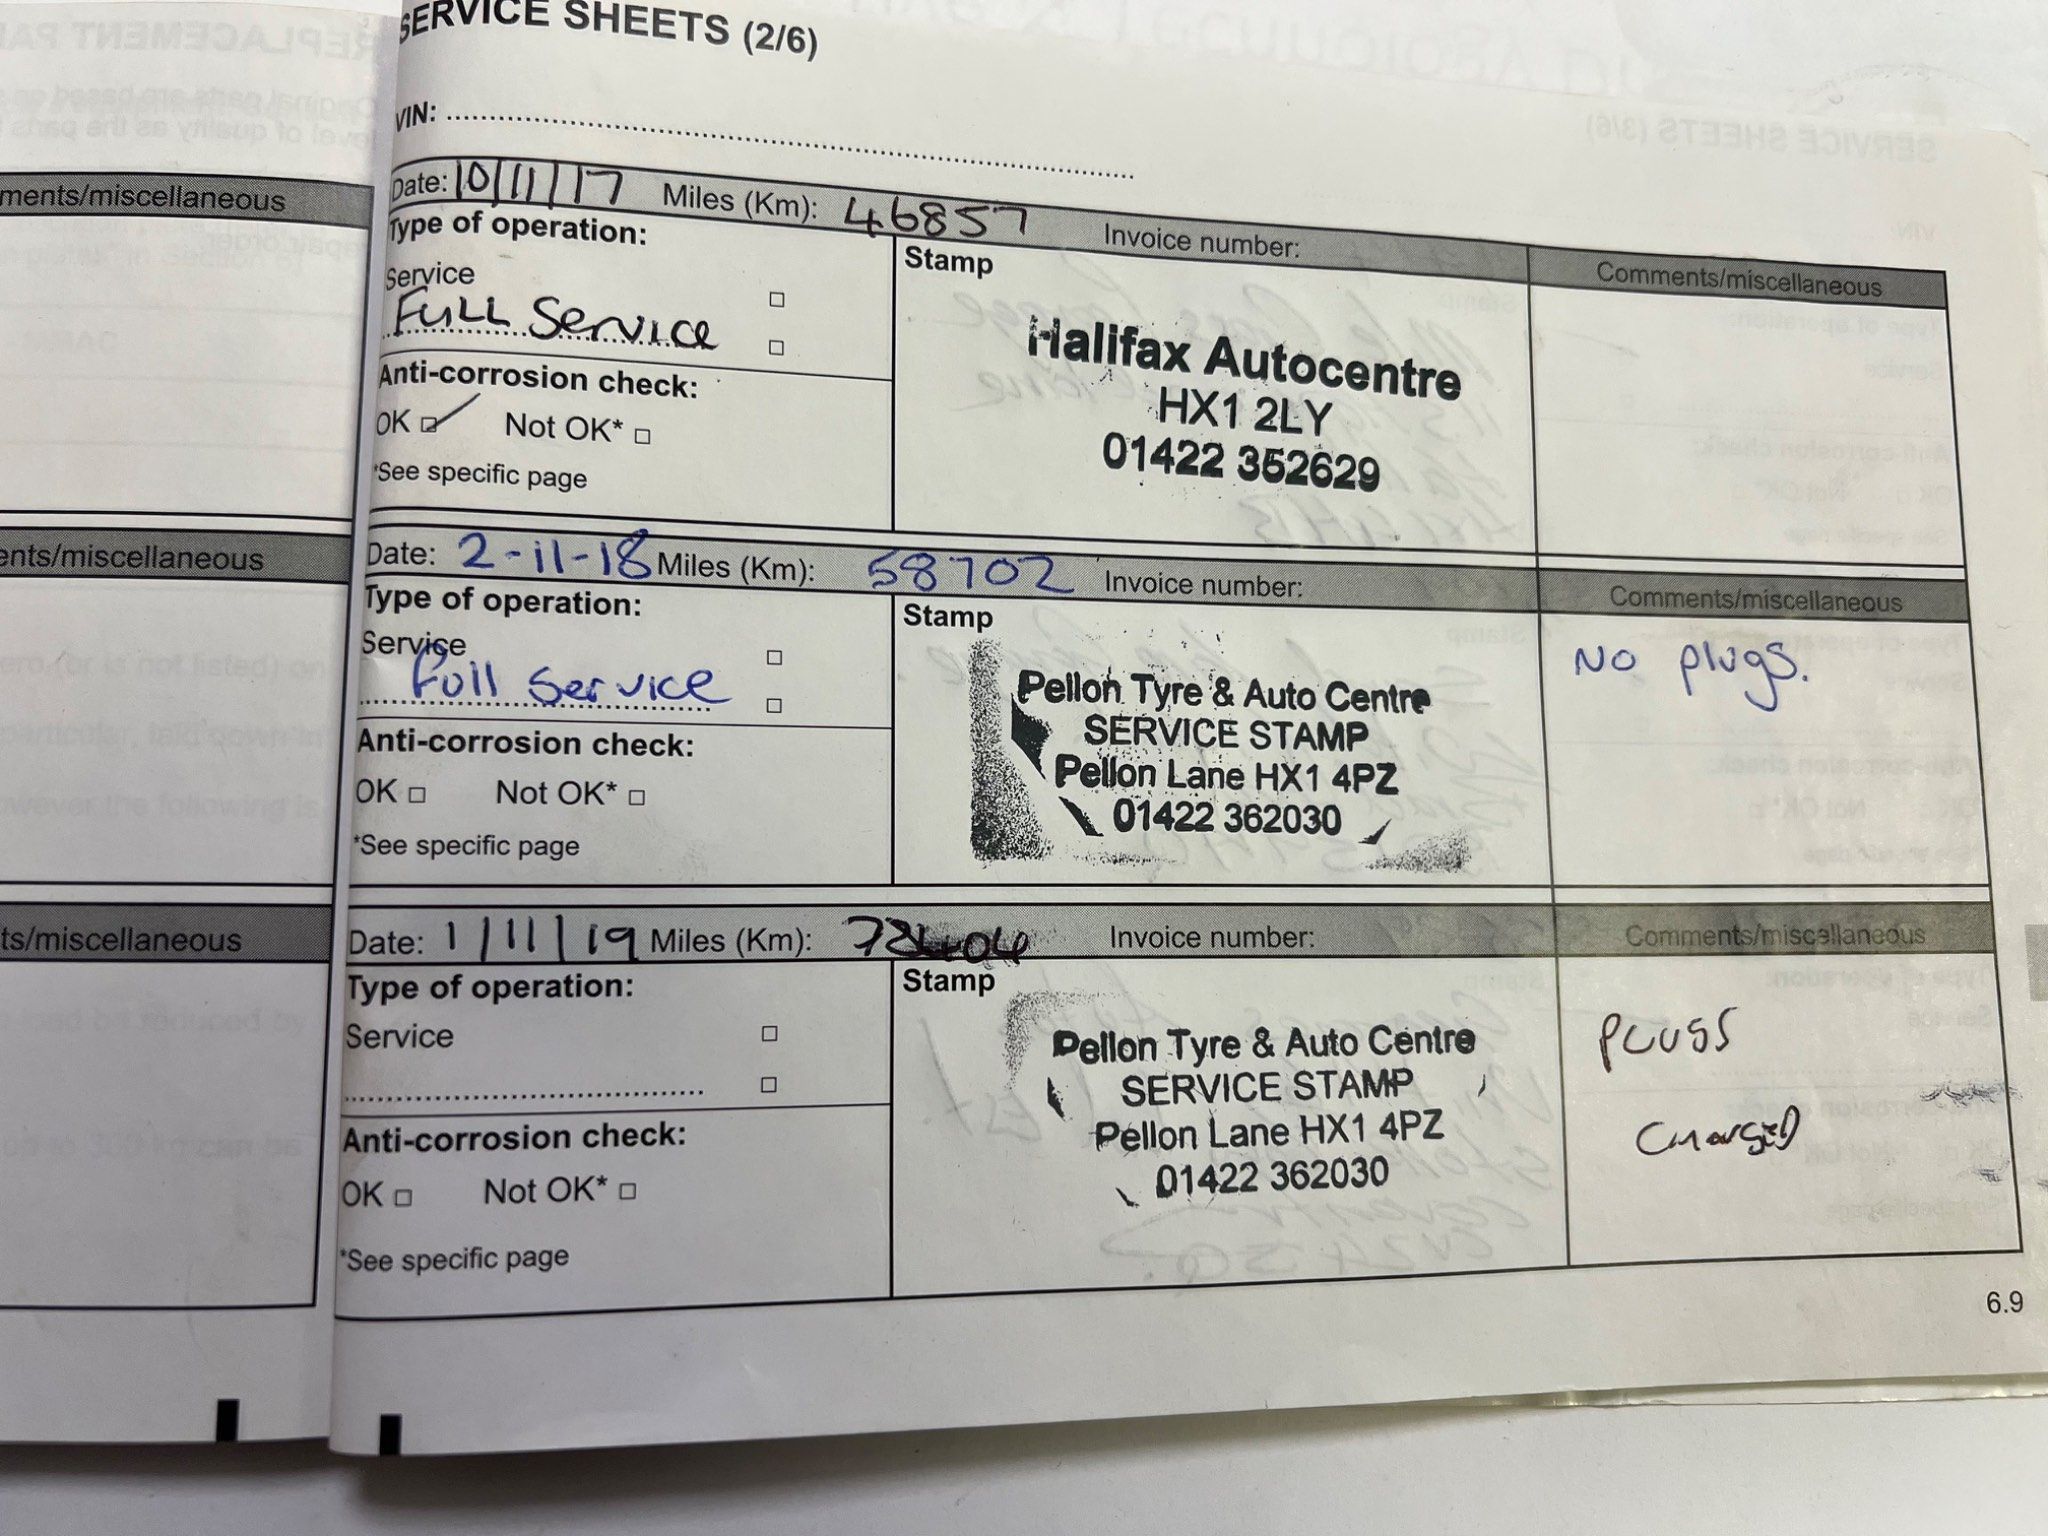 SERVICE SHEETS (2/6)
VIN:
Date: 10/11/17 Miles (Km): 46857 Invoice number:
Comments/miscellaneous
Type of operation:
Service
Full Service
Anti-corrosion check:
OK Not OK*
*See specific page
Stamp
Halifax Autocentre
HX1 2LY
01422 352629
Date: 2-11-18 Miles (Km): 58702 Invoice number:
Comments/miscellaneous
Type of operation:
Service
Full Service
Anti-corrosion check:
OK Not OK*
*See specific page
Stamp
Pellon Tyre & Auto Centre
SERVICE STAMP
Pellon Lane HX1 4PZ
01422 362030
No plugs.
Date: 1/11/19 Miles (Km): Invoice number:
Comments/miscellaneous
Type of operation:
Service
Anti-corrosion check:
OK Not OK*
*See specific page
Stamp
Pellon Tyre & Auto Centre
SERVICE STAMP
Pellon Lane HX1 4PZ
01422 362030
PLUGS
CHANGED
6.9
ments/miscellaneous
ents/miscellaneous
ts/miscellaneous